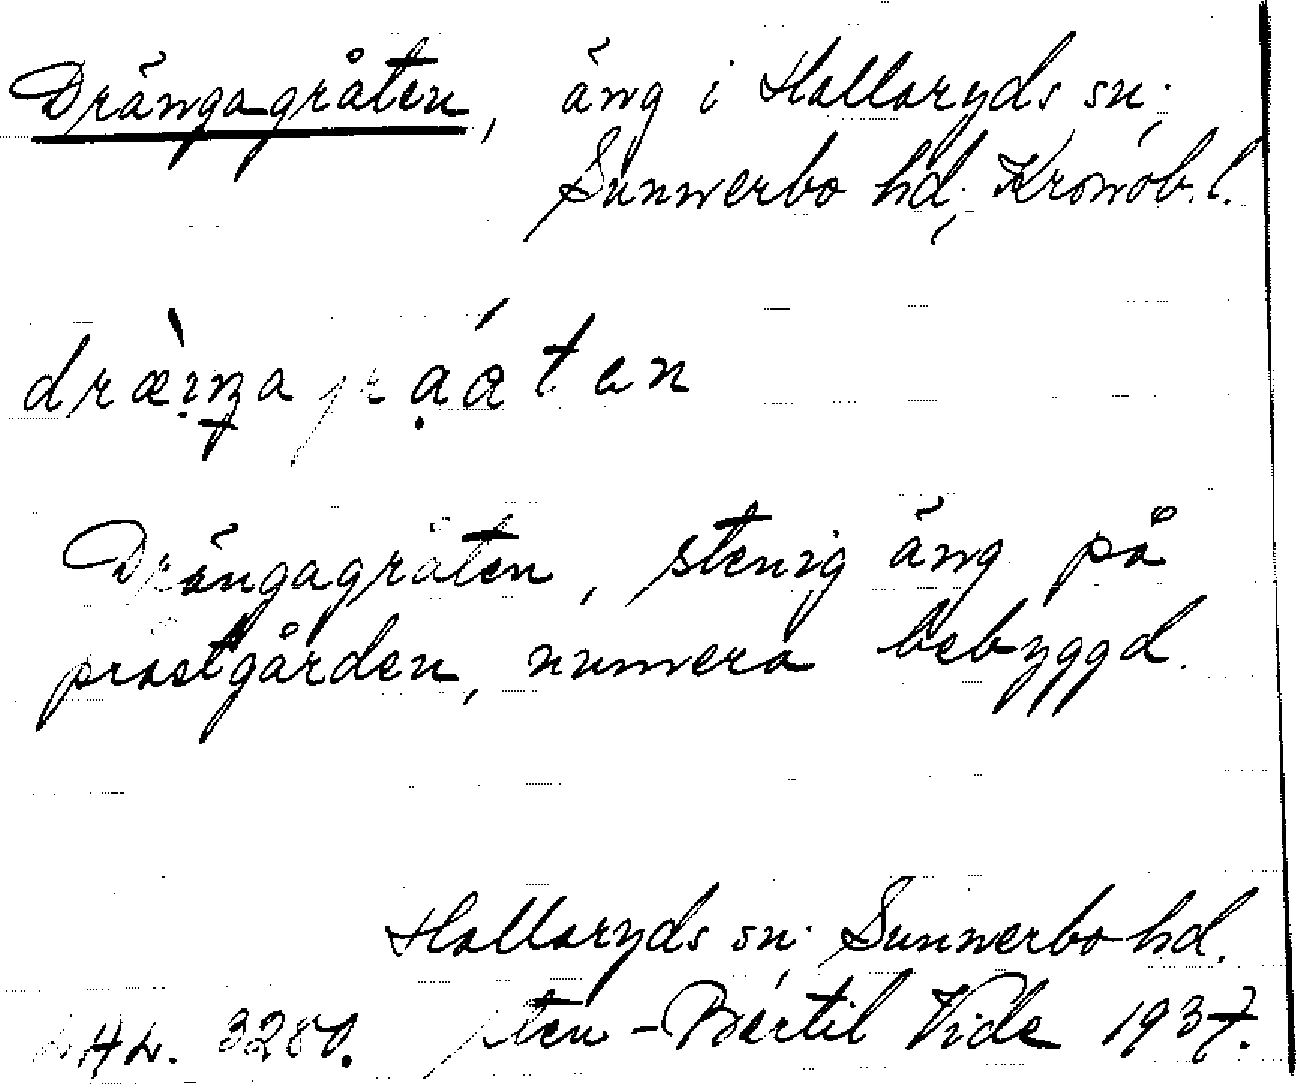 Drängagråten, äng i Hallaryds sn;
Sunnerbo hd; Kronob. l.
Drängagråten, stenig äng på
prästgården, numera bebyggd.
Hallaryds sn; Sunnerbo hd.
3280. Sten-Bertil Vide 1937.